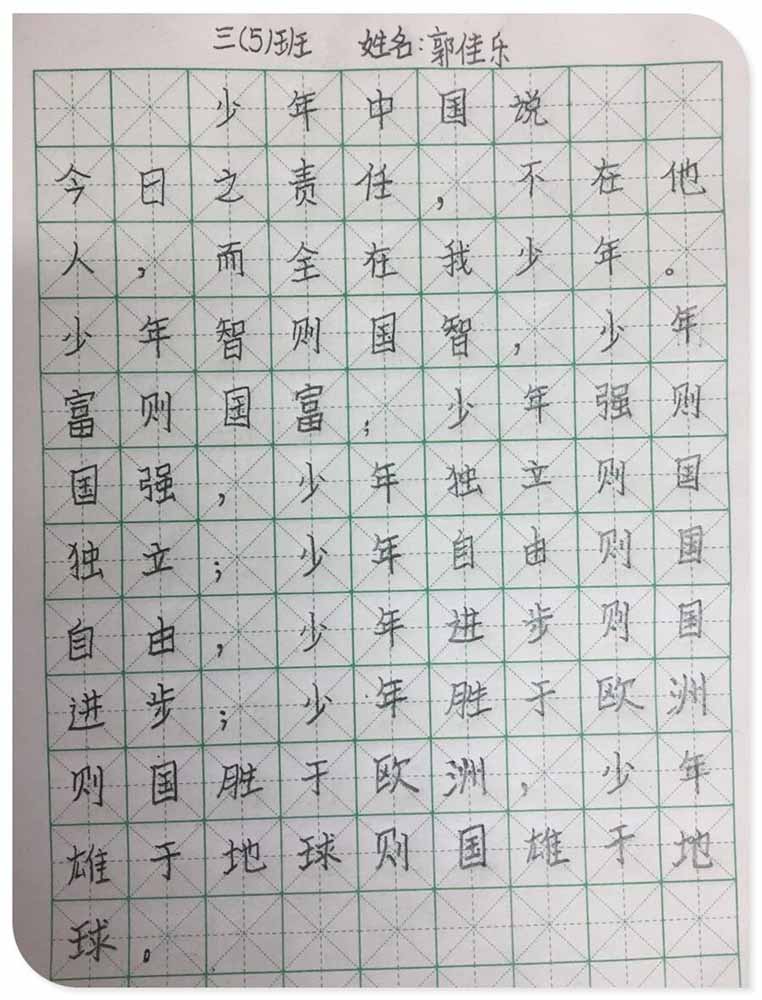 三(5)班 姓名:郭佳乐
少年中国说
今日之责任,不在他
人,而全在我少年。
少年智则国智,少年
富则国富;少年强则
国强,少年独立则国
独立;少年自由则国
自由,少年进步则国
进步;少年胜于欧洲
则国胜于欧洲,少年
雄于地球则国雄于地
球。